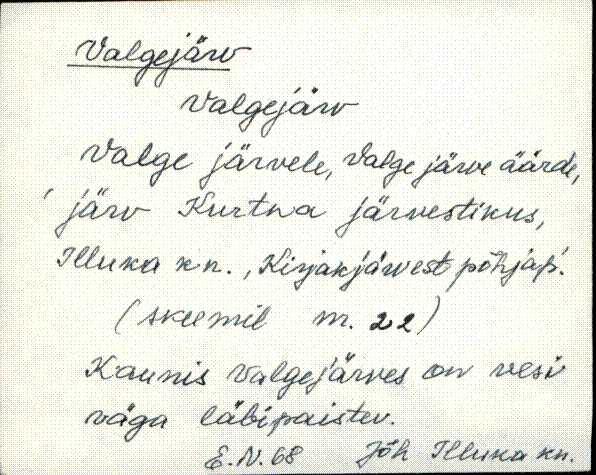 Valgejärv
Valgejärv
Valge järvele, Valge järve äärde,
järv Kurtna järvestikus,
Illuka kn., Kirjakjärvest põhjap.
(skeemil nr. 22)
Kaunis Valgejärves on vesi
väga läbipaistev.
E.N. 68 Jõh Illuka kn.